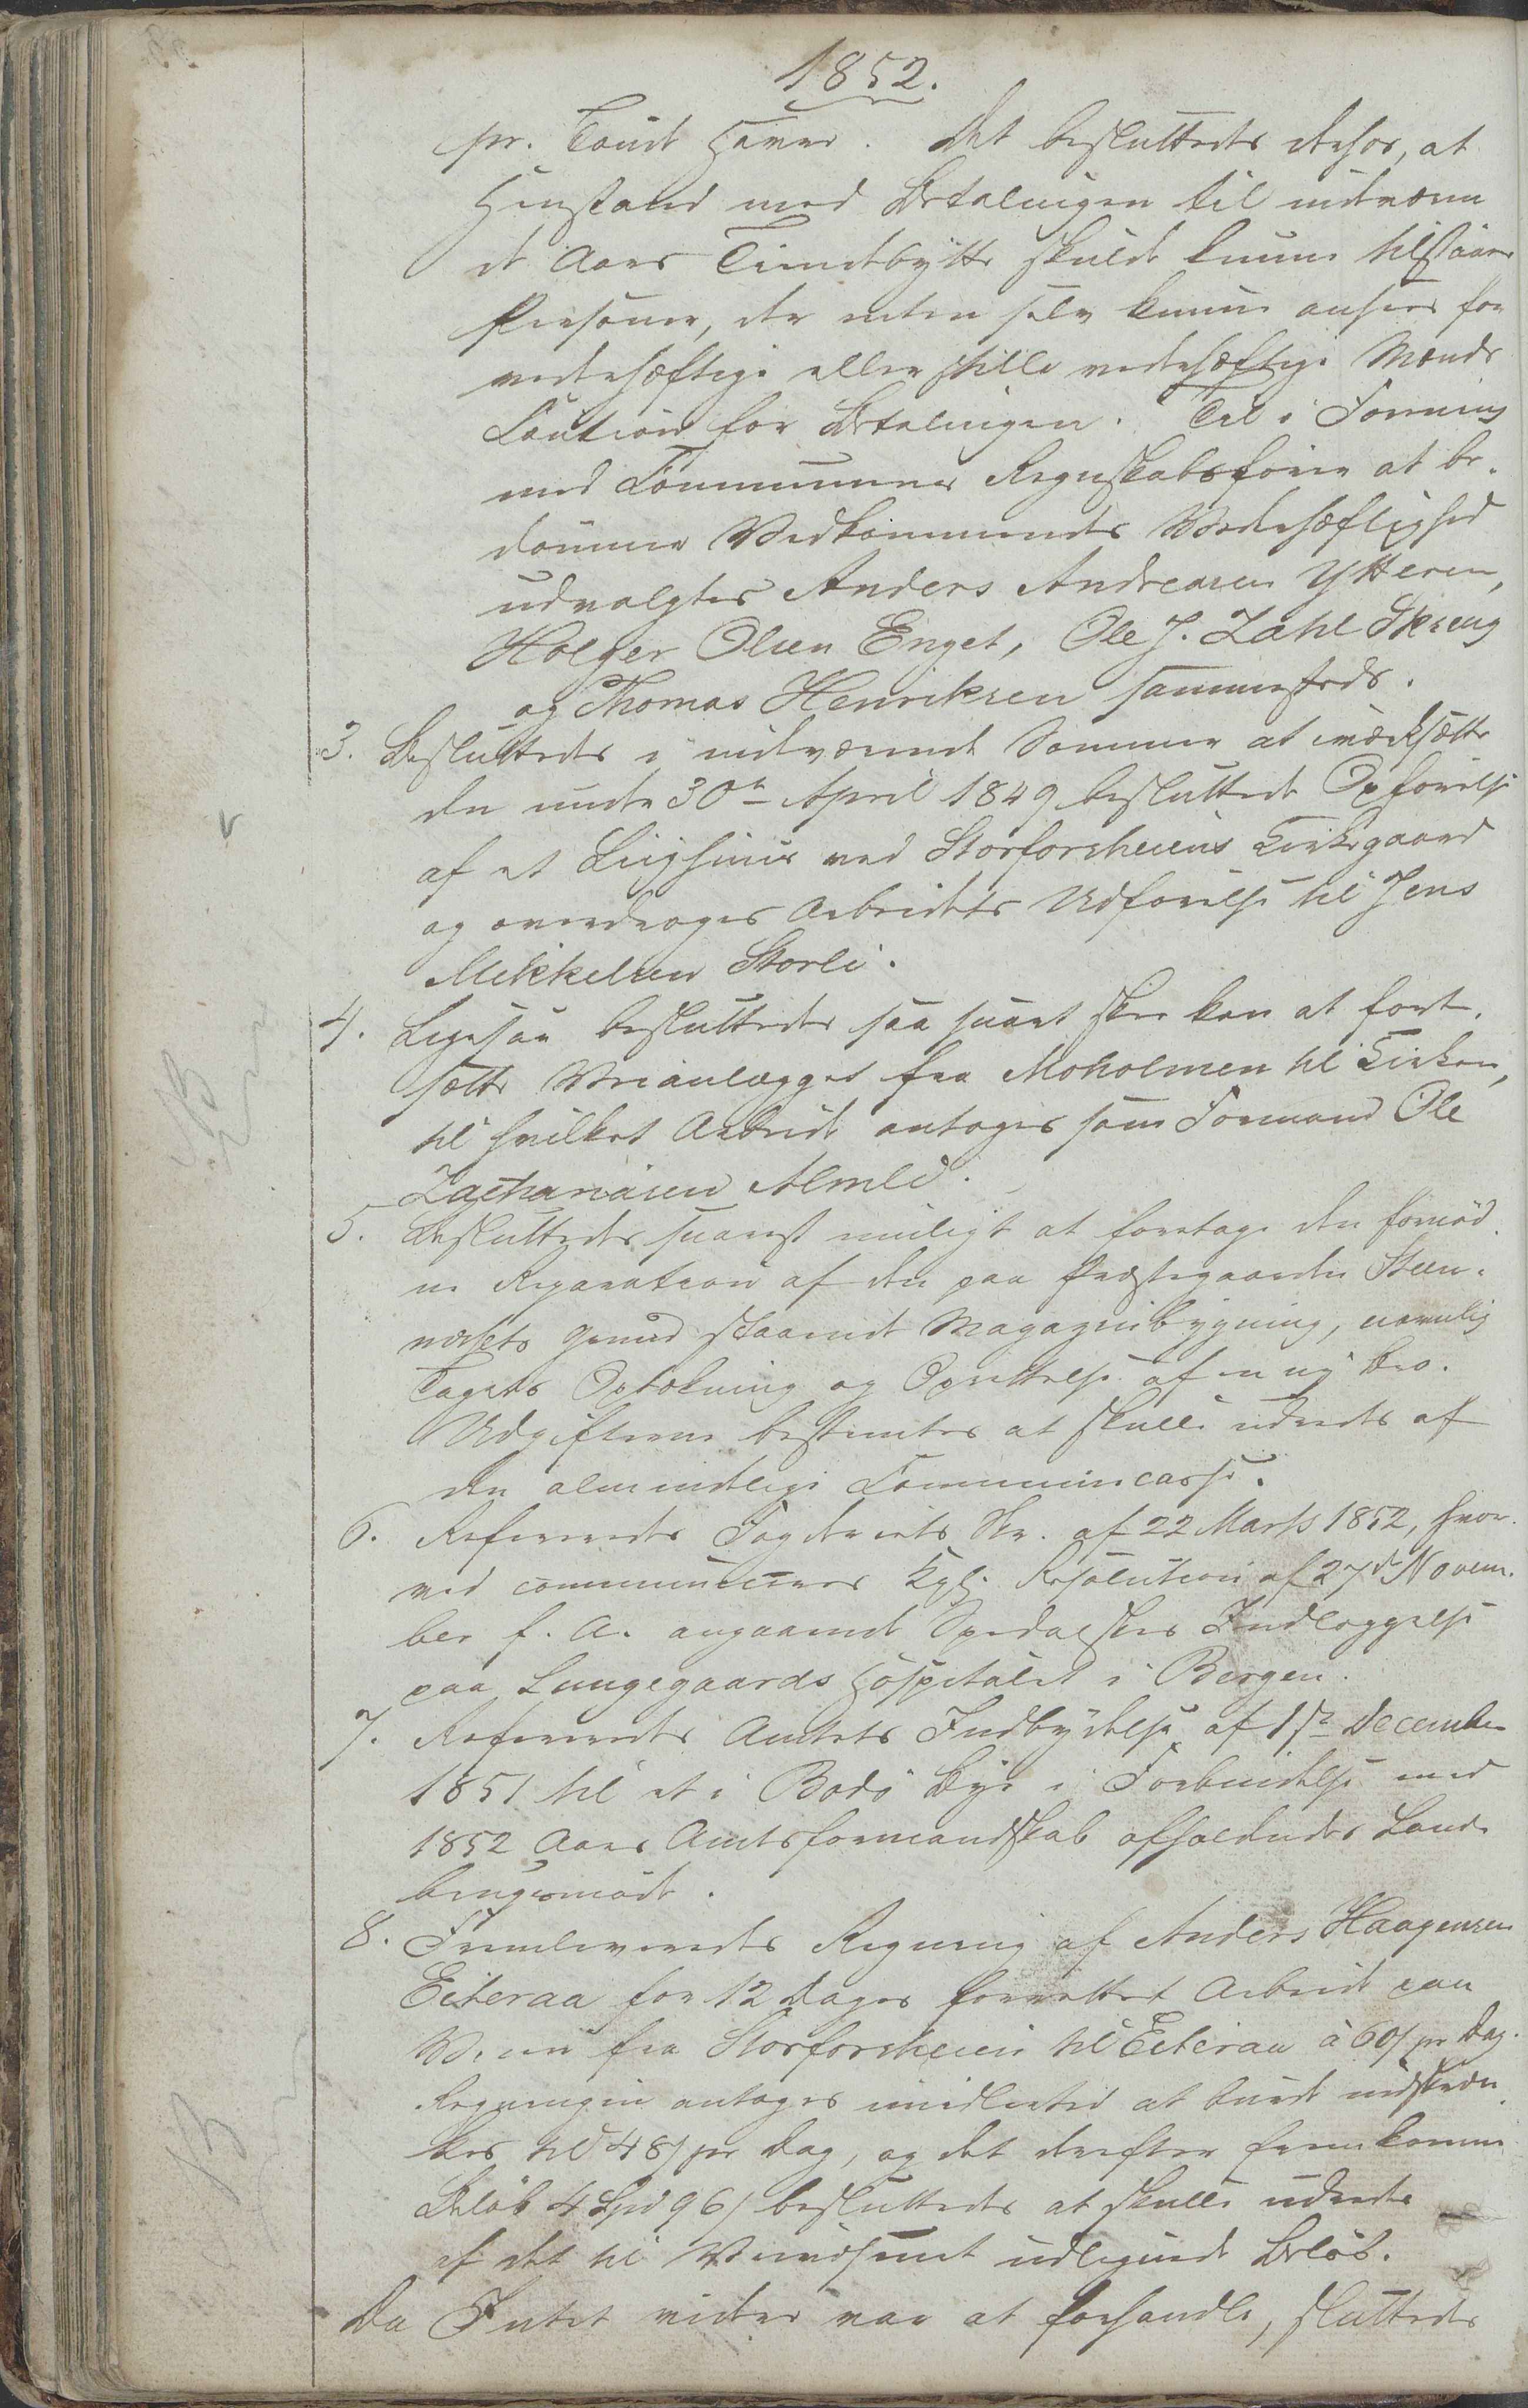 1852.
pr. Tønde Havre. Det besluttedes derfor, at
Henstand med Betalingen til indværen
de Aars Tiendebytte skulde kunne tilstaaes
Personer, der enten selv kunne ansees for
vederhæftige eller stille vederhæftige Mænds
Caution for Betalingen. Til i Forening
med Communens Regnskabsfører at be-
dømme Vedkommendes Vederhæftighed
udvalgtes Anders Andreasen Ytteren,
Holger Olsen Enget, Ole J. Zahl Skreng
og Thomas Henriksen sammesteds.
3. Besluttedes i indværende Sommer at iværksætte
den under 30te April 1849 besluttede Opførelse
af et Liighuus ved Storforsheiens Kirkegaard
og overdroges Arbeidets Udførelse til Jens
Mikkelsen Storli.
4. Ligesaa besluttedes saa snart skee kan at fort-
sætte Veianlægget fra Moholmen til Kirken,
til hvilket Arbeide antoges som Formand Ole
Zachariasen Almli.
5. Besluttedes snarest muligt at foretage den fornød-
ne Reparation af den paa Præstegaarden Steen-
næsets Grund staaende Magazinbygning, nemlig
Tagets Optækning og Oprettelse af en ny Bro.
Udgifterne bestemtes at skulle udredes af
den almindelige Communecasse.
6. Refereredes Fogderiets Skr. af 22 Marts 1852, hvor-
ved communiceres Kgl. Resolution af 27de Novem-
ber f. A. angaaende Spedalskes Indlæggelse
paa Lungegaards Hospitalet i Bergen.
7. Refereredes Amtets Indbydelse af 1ste December
1851 til et i Bodø Bye i Forbindelse med
1852 Aars Amtsformandskab afholdendes Land-
brugsmøde.
8. Fremleveredes Regning af Anders Haagensen
Eiteraa for 12 Dages forrettet Arbeide paa
Veien fra Storforsheien til Eiteraa à 60 ß pr Dag.
Regningen antoges imidlertid at burde nedsæt
tes til 48 ß pr Dag, og det derefter fremkomne
Beløb 4 Spd 96 ß besluttedes at skulle udredes
af det til Veivæsenet udlignede Beløb.
Da Intet videre var at forhandle, sluttedes